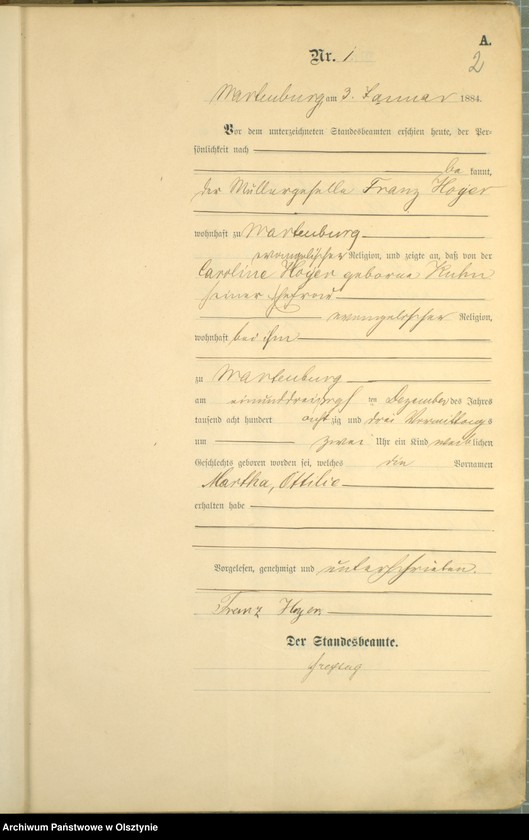 A.
2
Nr. 1
Wartenburg, am 3. Januar 1884.
Vor dem unterzeichneten Standesbeamten erschien heute, der Per-
sönlichkeit nach
be kannt,
der Müllergeselle Franz Hoyer
wohnhaft zu Wartenburg
evangelischer Religion, und zeigte an, daß von der
Caroline Hoyer geborne Kuhn
seiner Ehefrau
evangelischer Religion,
wohnhaft bei ihm
zu Wartenburg
am einunddreißigsten Dezember des Jahres
tausend acht hundert acht zig und drei Vormittags
um zwei Uhr ein Kind weiblichen
Geschlechts geboren worden sei, welches die Vornamen
Martha, Ottilie
erhalten habe
Vorgelesen, genehmigt und unterschrieben.
Franz Hoyer
Der Standesbeamte.
Freytag
Archiwum Państwowe w Olsztynie